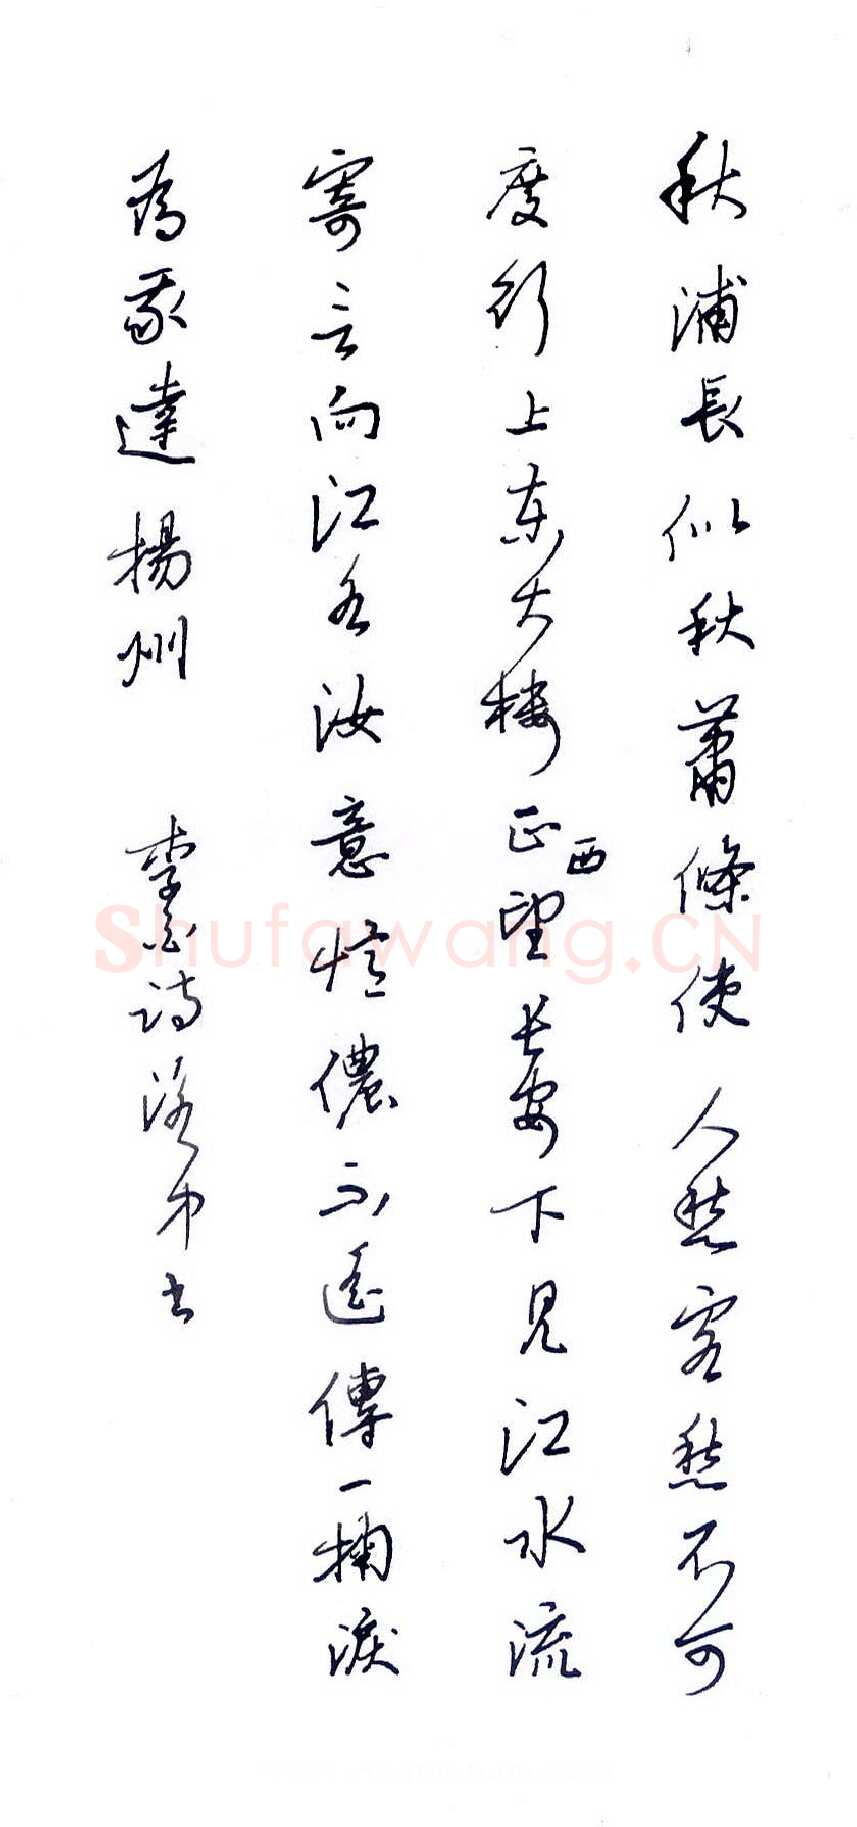 秋浦長似秋蕭條使人愁客愁不可
度行上东大楼正西望长安下見江水流
寄言向江水汝意憶儂不遥傳一掬淚
為我達揚州 李白诗 书
Shufawang.CN